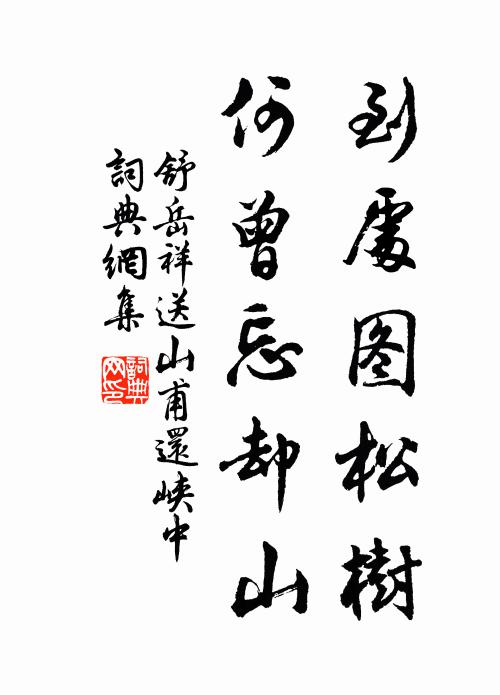 到處图松樹
何曾忘却山
舒岳祥送山甫還峽中
詞典網集
詞典网印